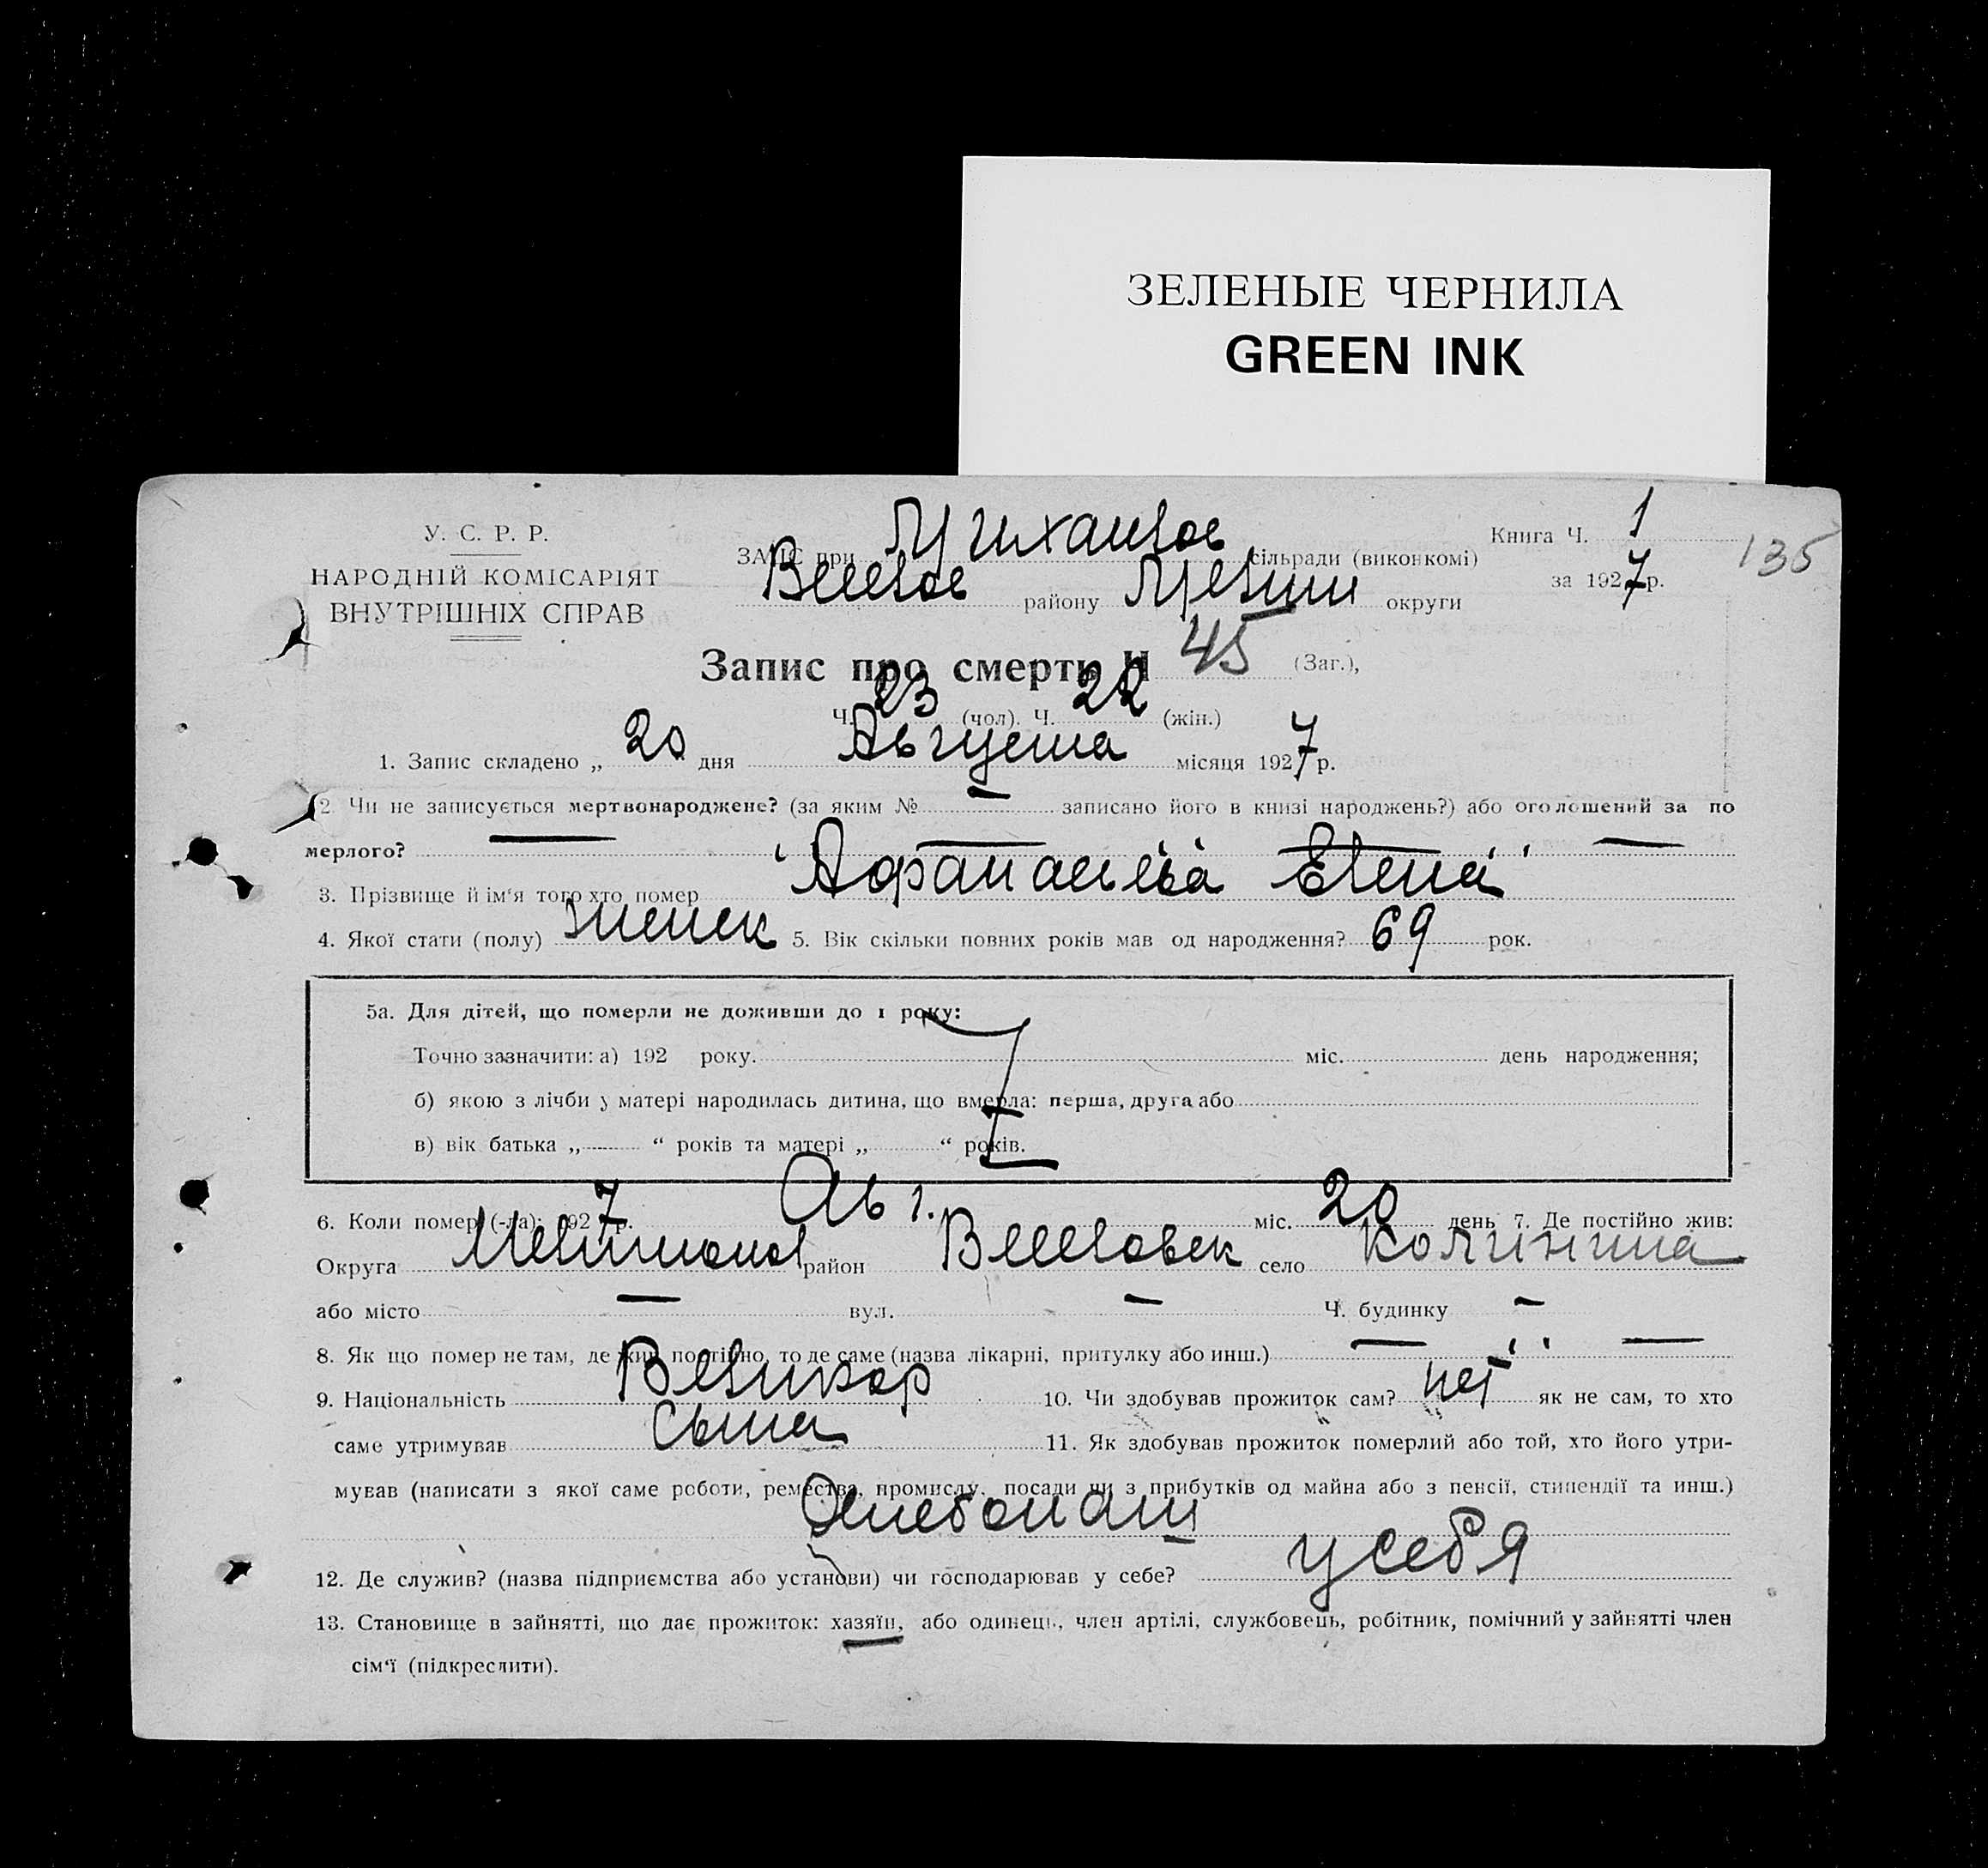 ЗЕЛЕНЫЕ ЧЕРНИЛА
GREEN INK
У. С. Р. Р.
НАРОДНІЙ КОМІСАРІЯТ
ВНУТРІШНІХ СПРАВ
ЗАПИС при сільради (виконкомі)
району округи
Книга Ч. 1
за 1927 р.
135
Запис про смерть Ч 45 (Заг.),
Ч. 23 (чол). Ч. 22 (жін.)
1. Запис складено „ 20 дня Августа місяця 1927 р.
2. Чи не записується мертвонароджене? (за яким № — записано його в книзі народжень?) або оголошений за по
мерлого? —
3. Прізвище й ім'я того хто помер Афанасьева Елена
4. Якої стати (полу) женск 5. Вік скільки повних років мав од народження? 69 рок.
5а. Для дітей, що померли не доживши до 1 року:
Точно зазначити: а) 192 року. міс. день народження;
б) якою з лічби у матері народилась дитина, що вмерла: перша, друга або
в) вік батька „ “ років та матері „ “ років.
6. Коли помер (-ла): 1927 р. Авг. міс. 20 день 7. Де постійно жив:
Округа район село
або місто — вул. — Ч. будинку —
8. Як що помер не там, де жив постійно, то де саме (назва лікарні, притулку або инш.) —
9. Національність Великор 10. Чи здобував прожиток сам? нет як не сам, то хто
саме утримував Сына 11. Як здобував прожиток померлий або той, хто його утри-
мував (написати з якої саме роботи, ремества, промислу, посади чи з прибутків од майна або з пенсії, стипендії та инш.)
Хлебопаш
12. Де служив? (назва підприємства або установи) чи господарював у себе? у себя
13. Становище в зайнятті, що дає прожиток: хазяїн, або одинець, член артілі, службовець, робітник, помічний у зайнятті член
сім'ї (підкреслити).